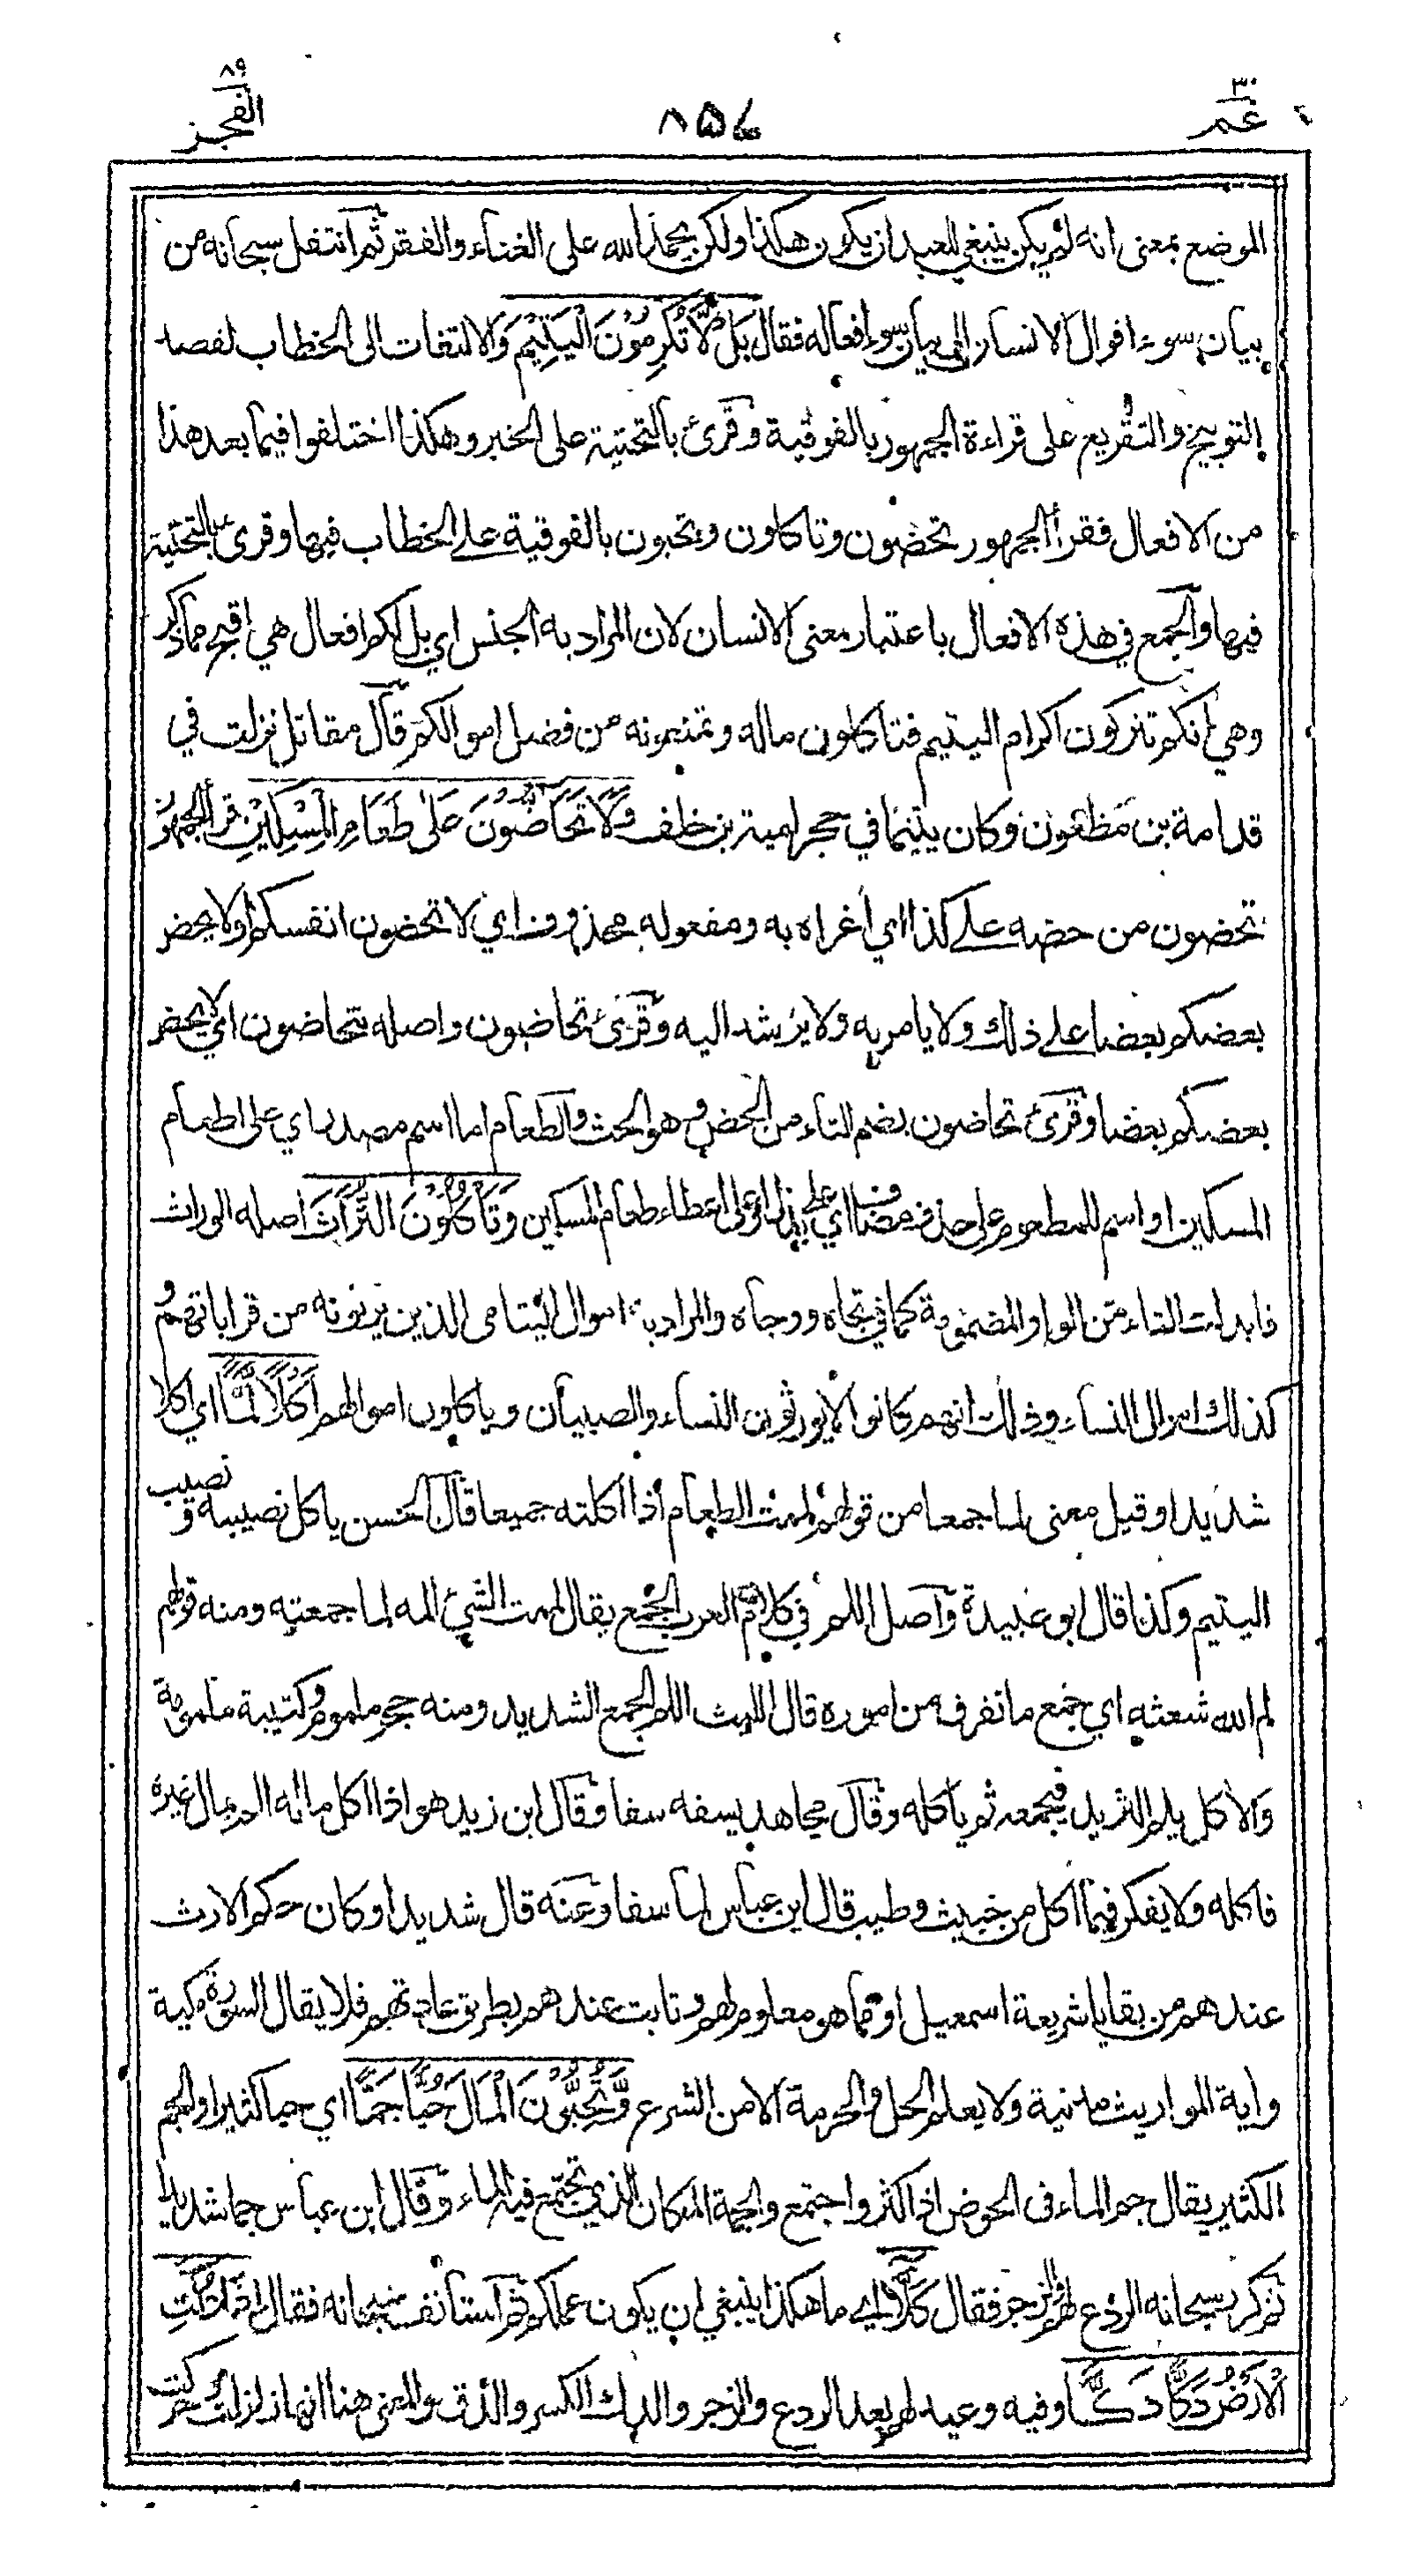 عم ٣٠
٨٥٤
الفجر ٨٩
الموضع بمعنى انه لم يكن ينبغي للعبد ان يكون هكذا ولكن يحمد الله على الغناء والفقر ثم انتقل سبحانه من
بيان سوء اقوال الانسان الى بيان سوء افعاله فقال بَلْ لَّا تُكْرِمُوْنَ الْيَتِيْمَ والالتفات الى الخطاب لقصد
التوبيخ والتقريع على قراءة الجمهور بالفوقية وقرئ بالتحتية على الخبر وهكذا اختلفوا فيما بعد هذا
من الافعال فقرأ الجمهور تحضون وتاكلون وتحبون بالفوقية على الخطاب فيها وقرئ بالتحتية
فيها والجمع في هذه الافعال باعتبار معنى الانسان لان المراد به الجنس اي بل لكم افعال هي اقبح مما ذكر
وهي انكم تتركون اكرام اليتيم فتاكلون ماله وتمنعونه من فضل اموالكم قال مقاتل نزلت في
قدامة بن مظعون وكان يتيما في حجر امية بن خلف وَلَا تَحَاضُّوْنَ عَلٰى طَعَامِ الْمِسْكِيْنِ قرأ الجمهور
تحضون من حضه على كذا اي أغراه به ومفعوله محذوف اي لا تحضون انفسكم او لا يحض
بعضكم بعضا على ذلك ولا يامر به ولا يرشد اليه وقرئ تحاضون واصله تتحاضون اي لا يحض
بعضكم بعضا وقرئ تحاضون بضم التاء من الحض وهو الحث والطعام اما اسم مصدر اي على اطعام
المسكين او اسم للمطعوم على حذف مضاف اي على بذل او على اعطاء طعام المسكين وَتَأْكُلُوْنَ التُّرَاثَ اصله الوراث
فابدلت التاء من الواو المضمومة كما في تجاه ووجاه والمراد به اموال اليتامى الذين يرثونه من قراباتهم و
كذلك اموال النساء وذلك انهم كانوا لا يورثون النساء والصبيان وياكلون اموالهم اَكْلًا لَّمًّا اي اكلا
شديدا وقيل معنى لما جمعا من قولهم لممت الطعام اذا اكلته جميعا قال الحسن ياكل نصيبه و نصيب
اليتيم وكذا قال ابو عبيدة واصل اللم في كلام العرب الجمع يقال لممت الشيء المه لما جمعته ومنه قولهم
لم الله شعثه اي جمع ما تفرق من اموره قال الليث اللم الجمع الشديد ومنه حجر ملموم وكتيبة ملمومة
والاكل يلم الثريد فيجمعه ثم ياكله وقال مجاهد يسفه سفا وقال ابن زيد هو اذا اكل ماله الم بمال غيره
فاكله ولا يفكر فيما اكل من خبيث وطيب قال ابن عباس لما سفا وعنه قال شديدا وكان حكم الارث
عندهم من بقايا شريعة اسمعيل او مما هو معلوم لهم وثابت عندهم بطريق عادتهم فلا يقال السورة مكية
واية المواريث مدنية ولا يعلم الحل والحرمة الا من الشرع وَّتُحِبُّوْنَ الْمَالَ حُبًّا جَمًّا اي حبا كثيرا والجم
الكثير يقال جم الماء في الحوض اذا كثر واجتمع والجمة المكان الذي يجتمع فيه الماء وقال ابن عباس جما شديدا
ثم كرر سبحانه الردع لهم والزجر فقال كَلَّا اي ما هكذا ينبغي ان يكون عملكم ثم استأنف سبحانه فقال اِذَا دُكَّتِ
الْاَرْضُ دَكًّا دَكًّا وفيه وعيد لهم بعد الردع والزجر والدك الكسر والدق والمعنى هنا انها زلزلت وحركت